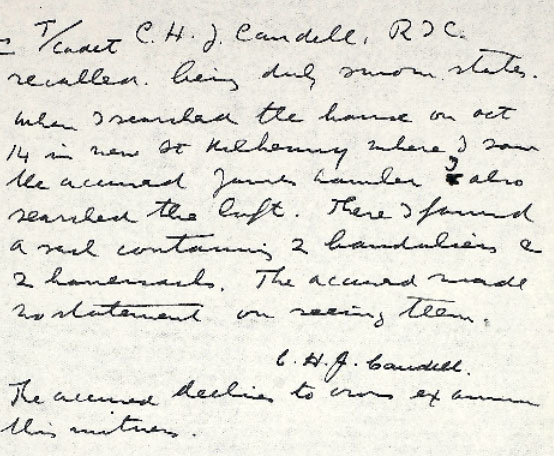 T/Cadet C. H. J. Caudell, RIC.
recalled. being duly sworn. states.
When I searched the house on Oct
14 in new St Kilkenny where I saw
the accused James I also
searched the loft. There I found
a sack containing 2 bandoliers &
2 haversacks. The accused made
no statement on seeing them.
C. H. J. Caudell.
The accused declines to cross examine
this witness.